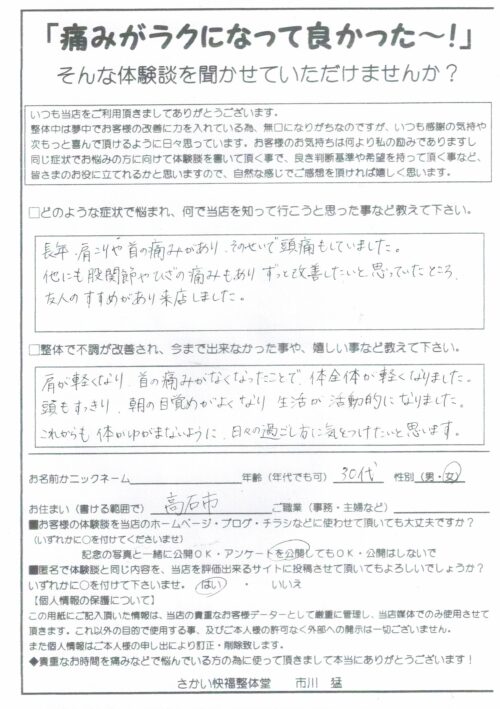 「痛みがラクになって良かった〜!」
そんな体験談を聞かせていただけませんか？
いつも当店をご利用頂きましてありがとうございます。
整体中は夢中でお客様の改善に力を入れている為、無口になりがちなのですが、いつも感謝の気持や
次もっと喜んで頂けるように日々思っています。お客様のお気持ちは何より私の励みでありますし
同じ症状でお悩みの方に向けて体験談を書いて頂く事で、良き判断基準や希望を持って頂く事など、
皆さまのお役に立てれるかと思いますので、自然な感じでご感想を頂ければ嬉しく思います。
□どのような症状で悩まれ、何で当店を知って行こうと思った事など教えて下さい。
長年、肩こりや首の痛みがあり、そのせいで頭痛もしていました。
他にも股関節やひざの痛みもあり ずっと改善したいと思っていたところ、
友人のすすめがあり来店しました。
□整体で不調が改善され、今まで出来なかった事や、嬉しい事など教えて下さい。
肩が軽くなり、首の痛みがなくなったことで、体全体が軽くなりました。
頭もすっきり、朝の目覚めがよくなり 生活が活動的になりました。
これからも 体がゆがまないように、日々の過ごし方に気をつけたいと思います。
お名前かニックネーム 年齢（年代でも可） 30代 性別（男・女）
お住まい（書ける範囲で） 高石市 ご職業（事務・主婦など）
■お客様の体験談を当店のホームページ・ブログ・チラシなどに使わせて頂いても大丈夫ですか？
（いずれかに○を付けてくださいませ）
記念の写真と一緒に公開OK・アンケートを公開してもOK・公開はしないで
■匿名で体験談と同じ内容を、当店を評価出来るサイトに投稿させて頂いてもよろしいでしょうか？
いずれかに○を付けて下さいませ。 はい ・ いいえ
【個人情報の保護について】
この用紙にご記入頂いた情報は、当店の貴重なお客様データーとして厳重に管理し、当店媒体でのみ使用させて
頂きます。これ以外の目的で使用する事、及びご本人様の許可なく外部への開示は一切ございません。
また個人情報はご本人様の申し出により訂正・削除致します。
◆貴重なお時間を痛みなどで悩んでいる方の為に使って頂きまして本当にありがとうございます！
さかい快福整体堂 市川 猛